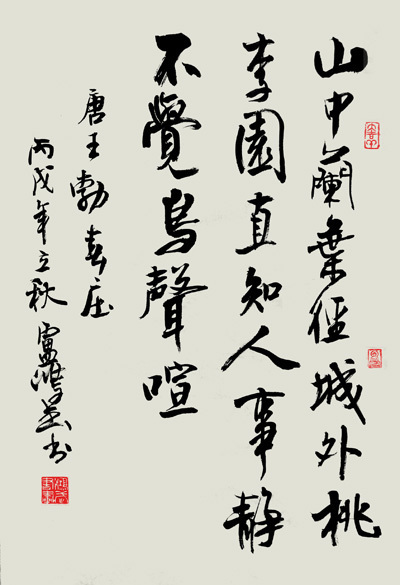 山中蘭葉徑城外桃
李園直知人事靜
不覺鳥聲喧
唐王勃春庄
丙戌年立秋盧书